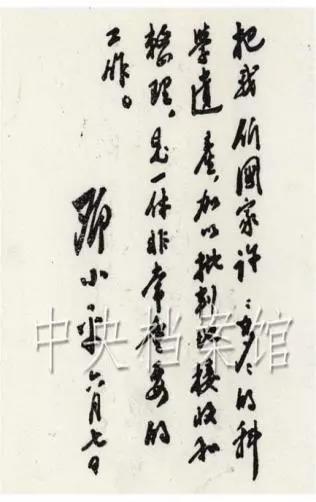 把我们國家许〻多〻的科
學遺產,加以批判地接收和
整理,是一件非常重要的
工作。
邓小平 六月七日
中央档案馆